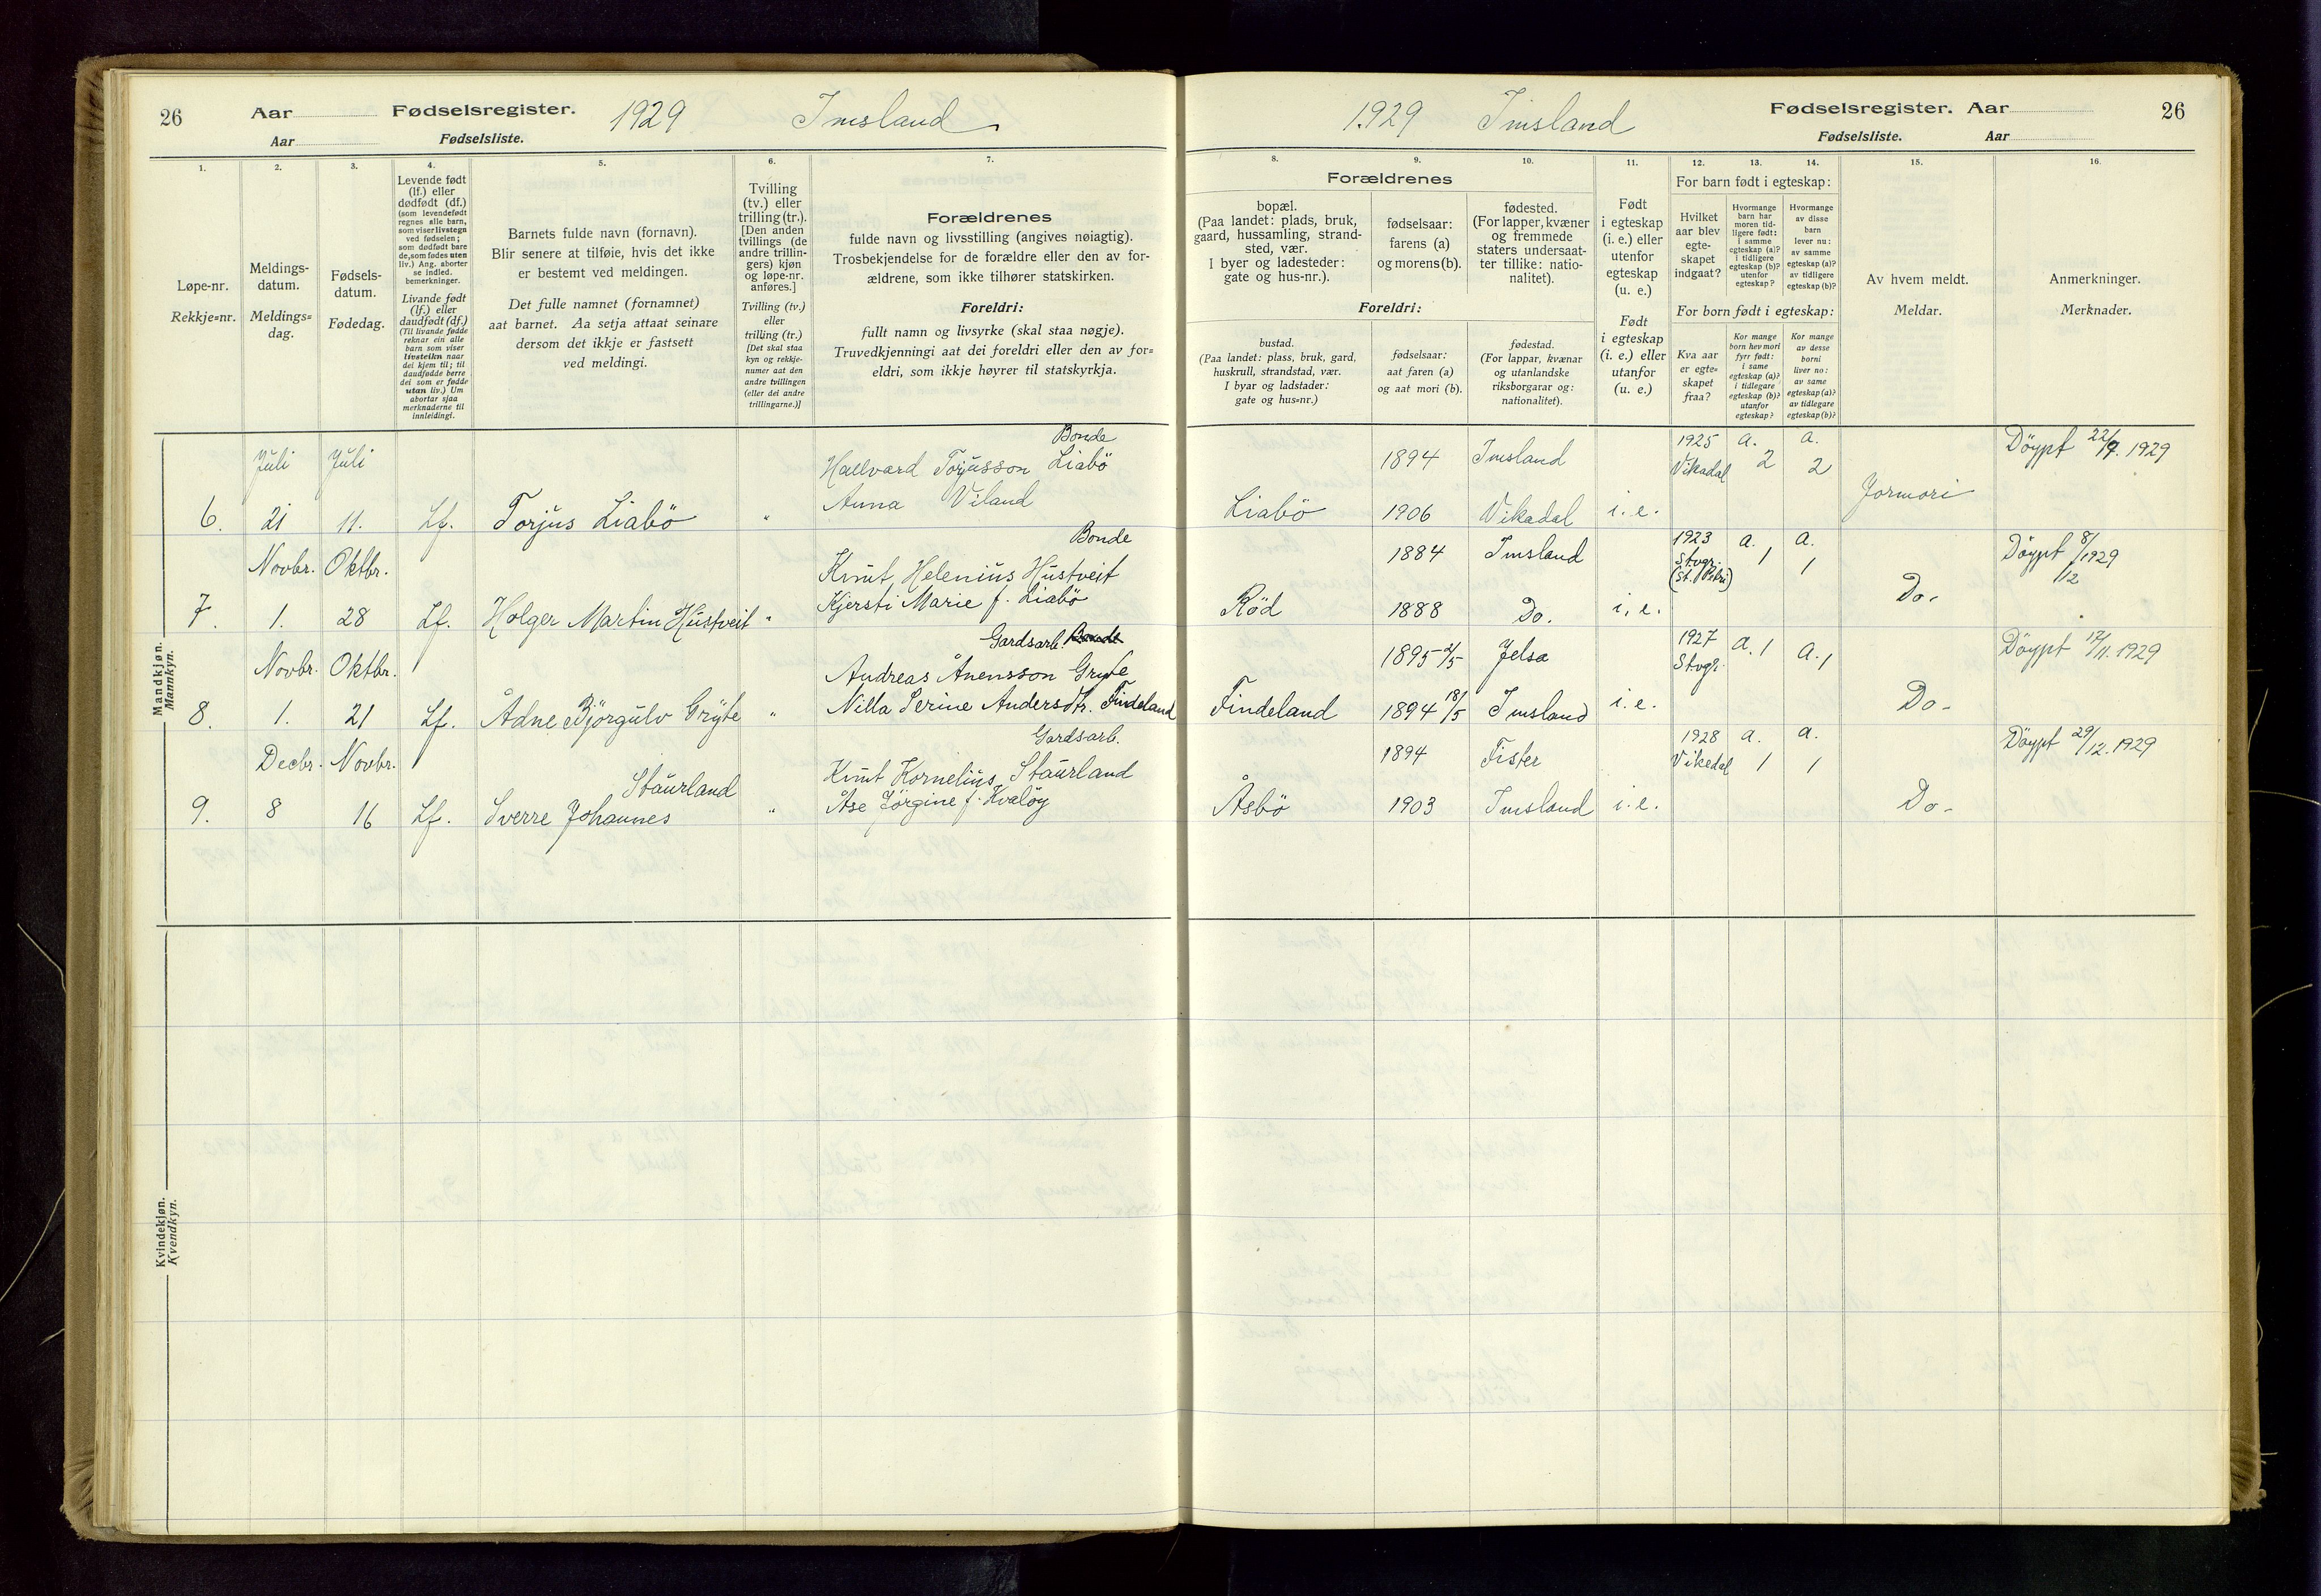 26 Aar Fødselsregister. 1929 Imsland
Aar Fødselsliste.
1. 2. 3. 4. 5. 6. 7.
Løpe-nr.
Rekkje=nr.
Meldings-
datum.
Meldings=
dag.
Fødsels-
datum.
Fødedag.
Levende født
(lf.) eller
dødfødt (df.)
(som levendefødt
regnes alle barn,
som viser livstegn
ved fødselen;
som dødfødt bare
de, som fødes uten
liv.) Ang. aborter
se indled.
bemerkninger.
Livande født
(lf.) eller
daudfødt (df.)
(Til livande fødde
reknar ein alle
barn som viser
livsteikn naar
dei kjem til; til
daudfødde berre
dei som er fødde
utan liv.) Um
abortar sjaa
merknaderne til
innleidingi.
Barnets fulde navn (fornavn).
Blir senere at tilføie, hvis det ikke
er bestemt ved meldingen.
Det fulle namnet (fornamnet)
aat barnet. Aa setja attaat seinare
dersom det ikkje er fastsett
ved meldingi.
Tvilling
(tv.) eller
trilling (tr.).
[Den anden
tvillings (de
andre trillin-
gers) kjøn
og løpe-nr.
anføres.]
Tvilling (tv.)
eller
trilling (tr.)
[Det skal staa
kyn og rekkje-
numer aat den
andre tvillingen
(eller dei andre
trillingarne.)]
Forældrenes
fulde navn og livsstilling (angives nøiagtig).
Trosbekjendelse for de forældre eller den av for-
ældrene, som ikke tilhører statskirken.
Foreldri:
fullt namn og livsyrke (skal staa nøgje).
Truvedkjenningi aat dei foreldri eller den av for=
eldri, som ikkje høyrer til statskyrkja.
Mandkjøn.
Mannkyn.
Bonde
Juli Juli Hallvard Torjusson Liabö
Anna Viland
6. 21 11. Lf. Torjus Liabö "
Bonde
Novbr. Oktbr. Knut Helenius Hustveit
Kjersti Marie f. Liabö
7. 1. 28 Lf. Holger Martin Hustveit "
Gardsarb. Bonde
Novbr. Oktbr. Andreas Ånensson Gryte
Nilla Serine Andersdtr. Findeland
8. 1. 21 Lf. Ådne Bjørgulv Gryte "
Gardsarb.
Decbr. Novbr. Knut Kornelius Staurland
Staurland Åse Jörgine f. Kvalöy
9. 8 16 Lf. Sverre Johannes "
Kvindekjøn.
Kvendkyn.
1929 Imsland Fødselsregister. Aar 26
Fødselsliste. Aar
8. 9. 10. 11. 12. 13. 14. 15. 16.
Forældrenes
bopæl.
(Paa landet: plads, bruk,
gaard, hussamling, strand-
sted, vær.
I byer og ladesteder:
gate og hus-nr.).
fødselsaar:
farens (a)
og morens (b).
fødested.
(For lapper, kvæner
og fremmede
staters undersaat-
ter tillike: natio-
nalitet).
Foreldri:
bustad.
(Paa landet: plass, bruk, gard,
huskrull, strandstad, vær.
I byar og ladstader:
gate og hus=nr.)
fødselsaar:
aat faren (a)
og aat mori (b).
fødestad.
(For lappar, kvænar
og utanlandske
riksborgarar og:
nationalitet).
Født
i egteskap
(i. e.) eller
utenfor
egteskap
(u. e.)
Født
i egteskap
(i. e.) eller
utanfor
(u. e.)
For barn født i egteskap:
Hvilket
aar blev
egte-
skapet
indgaat?
Hvormange
barn har
moren tid-
ligere født:
i samme
egteskap (a)?
i tidligere
egteskap (b)?
utenfor
egteskap?
Hvormange
av disse
barn
lever nu:
av samme
egteskap (a)?
av tidligere
egteskap (b)?
For born født i egteskap:
Kva aar
er egte=
skapet
fraa?
Kor mange
born hev mori
fyrr født:
i same
egteskap (a)?
i tidlegare
egteskap (b)?
utanfor
egteskap?
Kor mange
av desse
borni
liver no:
av same
egteskap (a)?
av tidlegare
egteskap (b)?
Av hvem meldt.
Meldar.
Anmerkninger.
Merknader.
1894 Imsland 1925 a. a. Döypt 22/9. 1929
Vikadal 2 2
Liabö 1906 Vikadal i. e. Jormori
1884 Imsland 1923 a. a. Döypt 8/
Stvgr. 1 1 1929
(St. Petri) 1/12
Röd 1888 Do. i. e. Do.
1895 2/5 Jelsa 1927 a. 1 a. 1 Döypt 17/11. 1929
Stvgr.
Findeland 1894 18/5 Imsland i. e. Do.
1894 Fister 1928 a. a. Döypt 29/12. 1929
Vikedal 1 1
Åsbö 1903 Imsland i. e. Do.